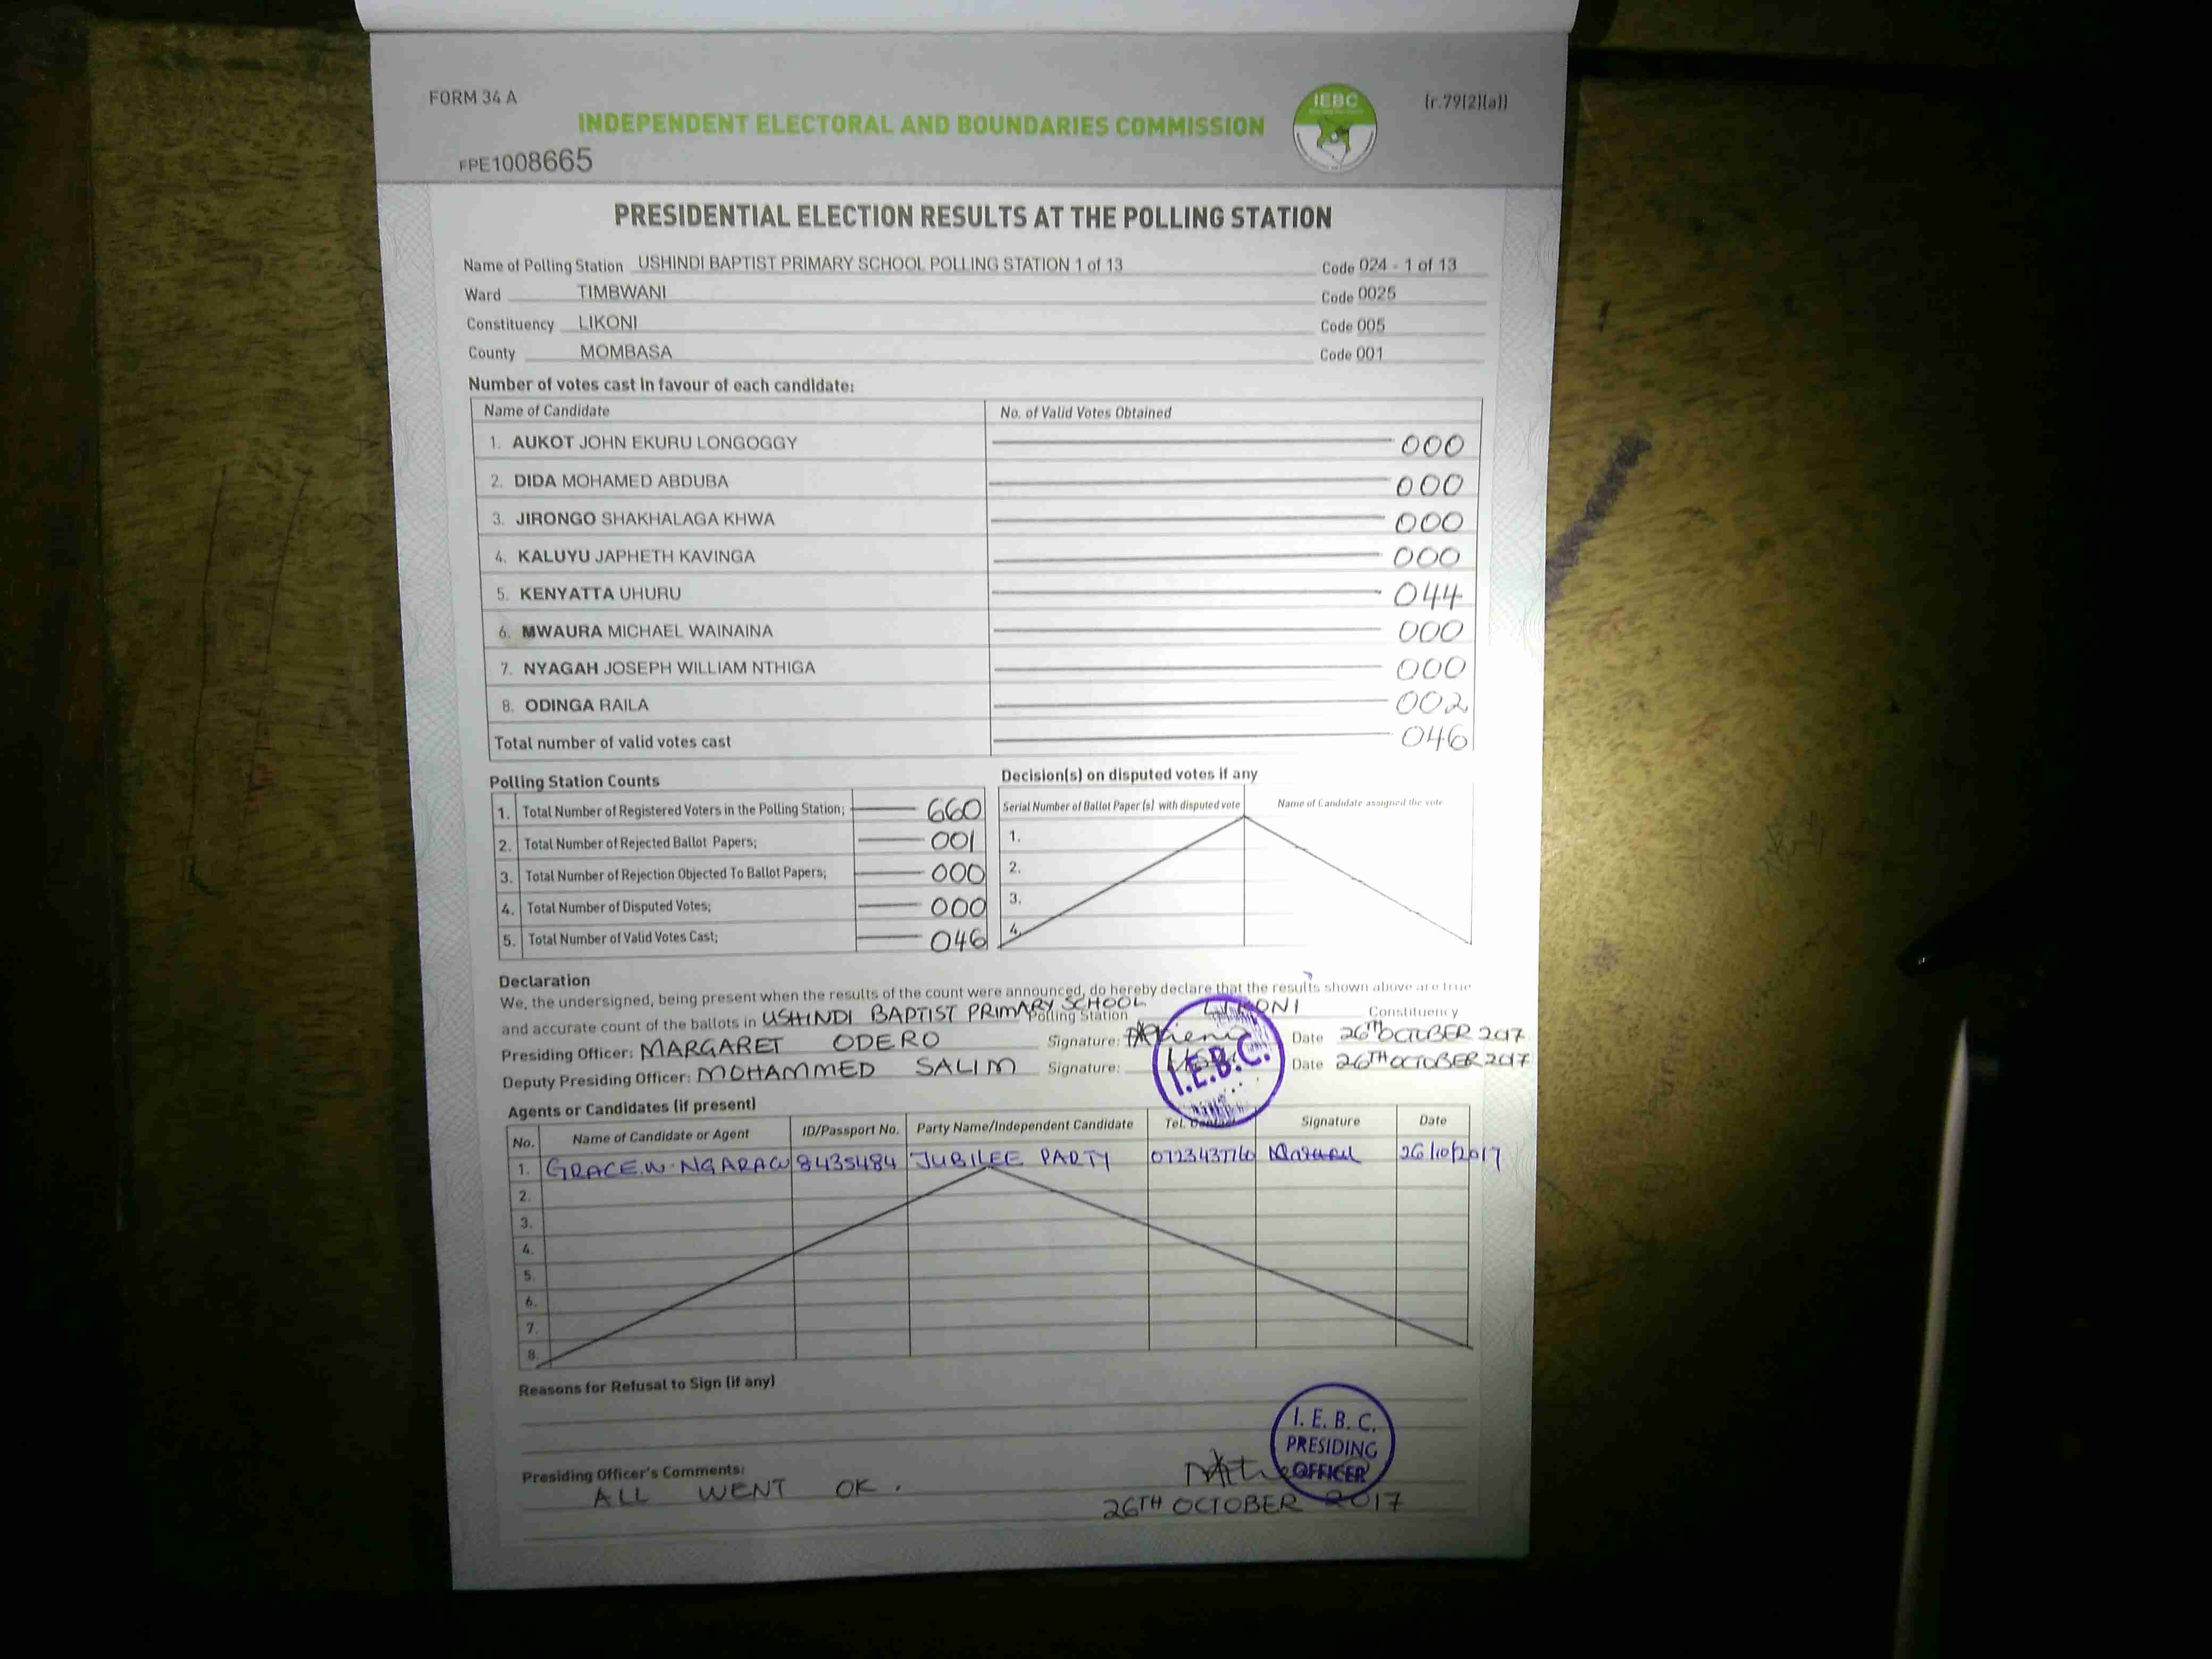 FORM 34 A
[r.79(2)(a)]
INDEPENDENT ELECTORAL AND BOUNDARIES COMMISSION
IEBC
FPE1008665
PRESIDENTIAL ELECTION RESULTS AT THE POLLING STATION
Name of Polling Station USHINDI BAPTIST PRIMARY SCHOOL POLLING STATION 1 of 13 Code 024 - 1 of 13
Ward TIMBWANI Code 0025
Constituency LIKONI Code 005
County MOMBASA Code 001
Number of votes cast in favour of each candidate:
Name of Candidate No. of Valid Votes Obtained
1. AUKOT JOHN EKURU LONGOGGY 000
2. DIDA MOHAMED ABDUBA 000
3. JIRONGO SHAKHALAGA KHWA 000
4. KALUYU JAPHETH KAVINGA 000
5. KENYATTA UHURU 044
6. MWAURA MICHAEL WAINAINA 000
7. NYAGAH JOSEPH WILLIAM NTHIGA 000
8. ODINGA RAILA 002
Total number of valid votes cast 046
Polling Station Counts
1. Total Number of Registered Voters in the Polling Station; 660
2. Total Number of Rejected Ballot Papers; 001
3. Total Number of Rejection Objected To Ballot Papers; 000
4. Total Number of Disputed Votes; 000
5. Total Number of Valid Votes Cast; 046
Decision(s) on disputed votes if any
Serial Number of Ballot Paper (s) with disputed vote Name of Candidate assigned the vote
1.
2.
3.
4.
Declaration
We, the undersigned, being present when the results of the count were announced, do hereby declare that the results shown above are true
and accurate count of the ballots in USHINDI BAPTIST PRIMARY SCHOOL Polling Station LIKONI Constituency
Presiding Officer: MARGARET ODERO Signature: Date 26TH OCTOBER 2017
Deputy Presiding Officer: MOHAMMED SALIM Signature: Date 26TH OCTOBER 2017
I.E.B.C.
Agents or Candidates (if present)
No. Name of Candidate or Agent ID/Passport No. Party Name/Independent Candidate Tel. Contact Signature Date
1. GRACE.W. 8435484 JUBILEE PARTY 26/10/2017
2.
3.
4.
5.
6.
7.
8.
Reasons for Refusal to Sign (if any)
I. E. B. C.
PRESIDING
OFFICER
Presiding Officer's Comments:
ALL WENT OK.
26TH OCTOBER 2017